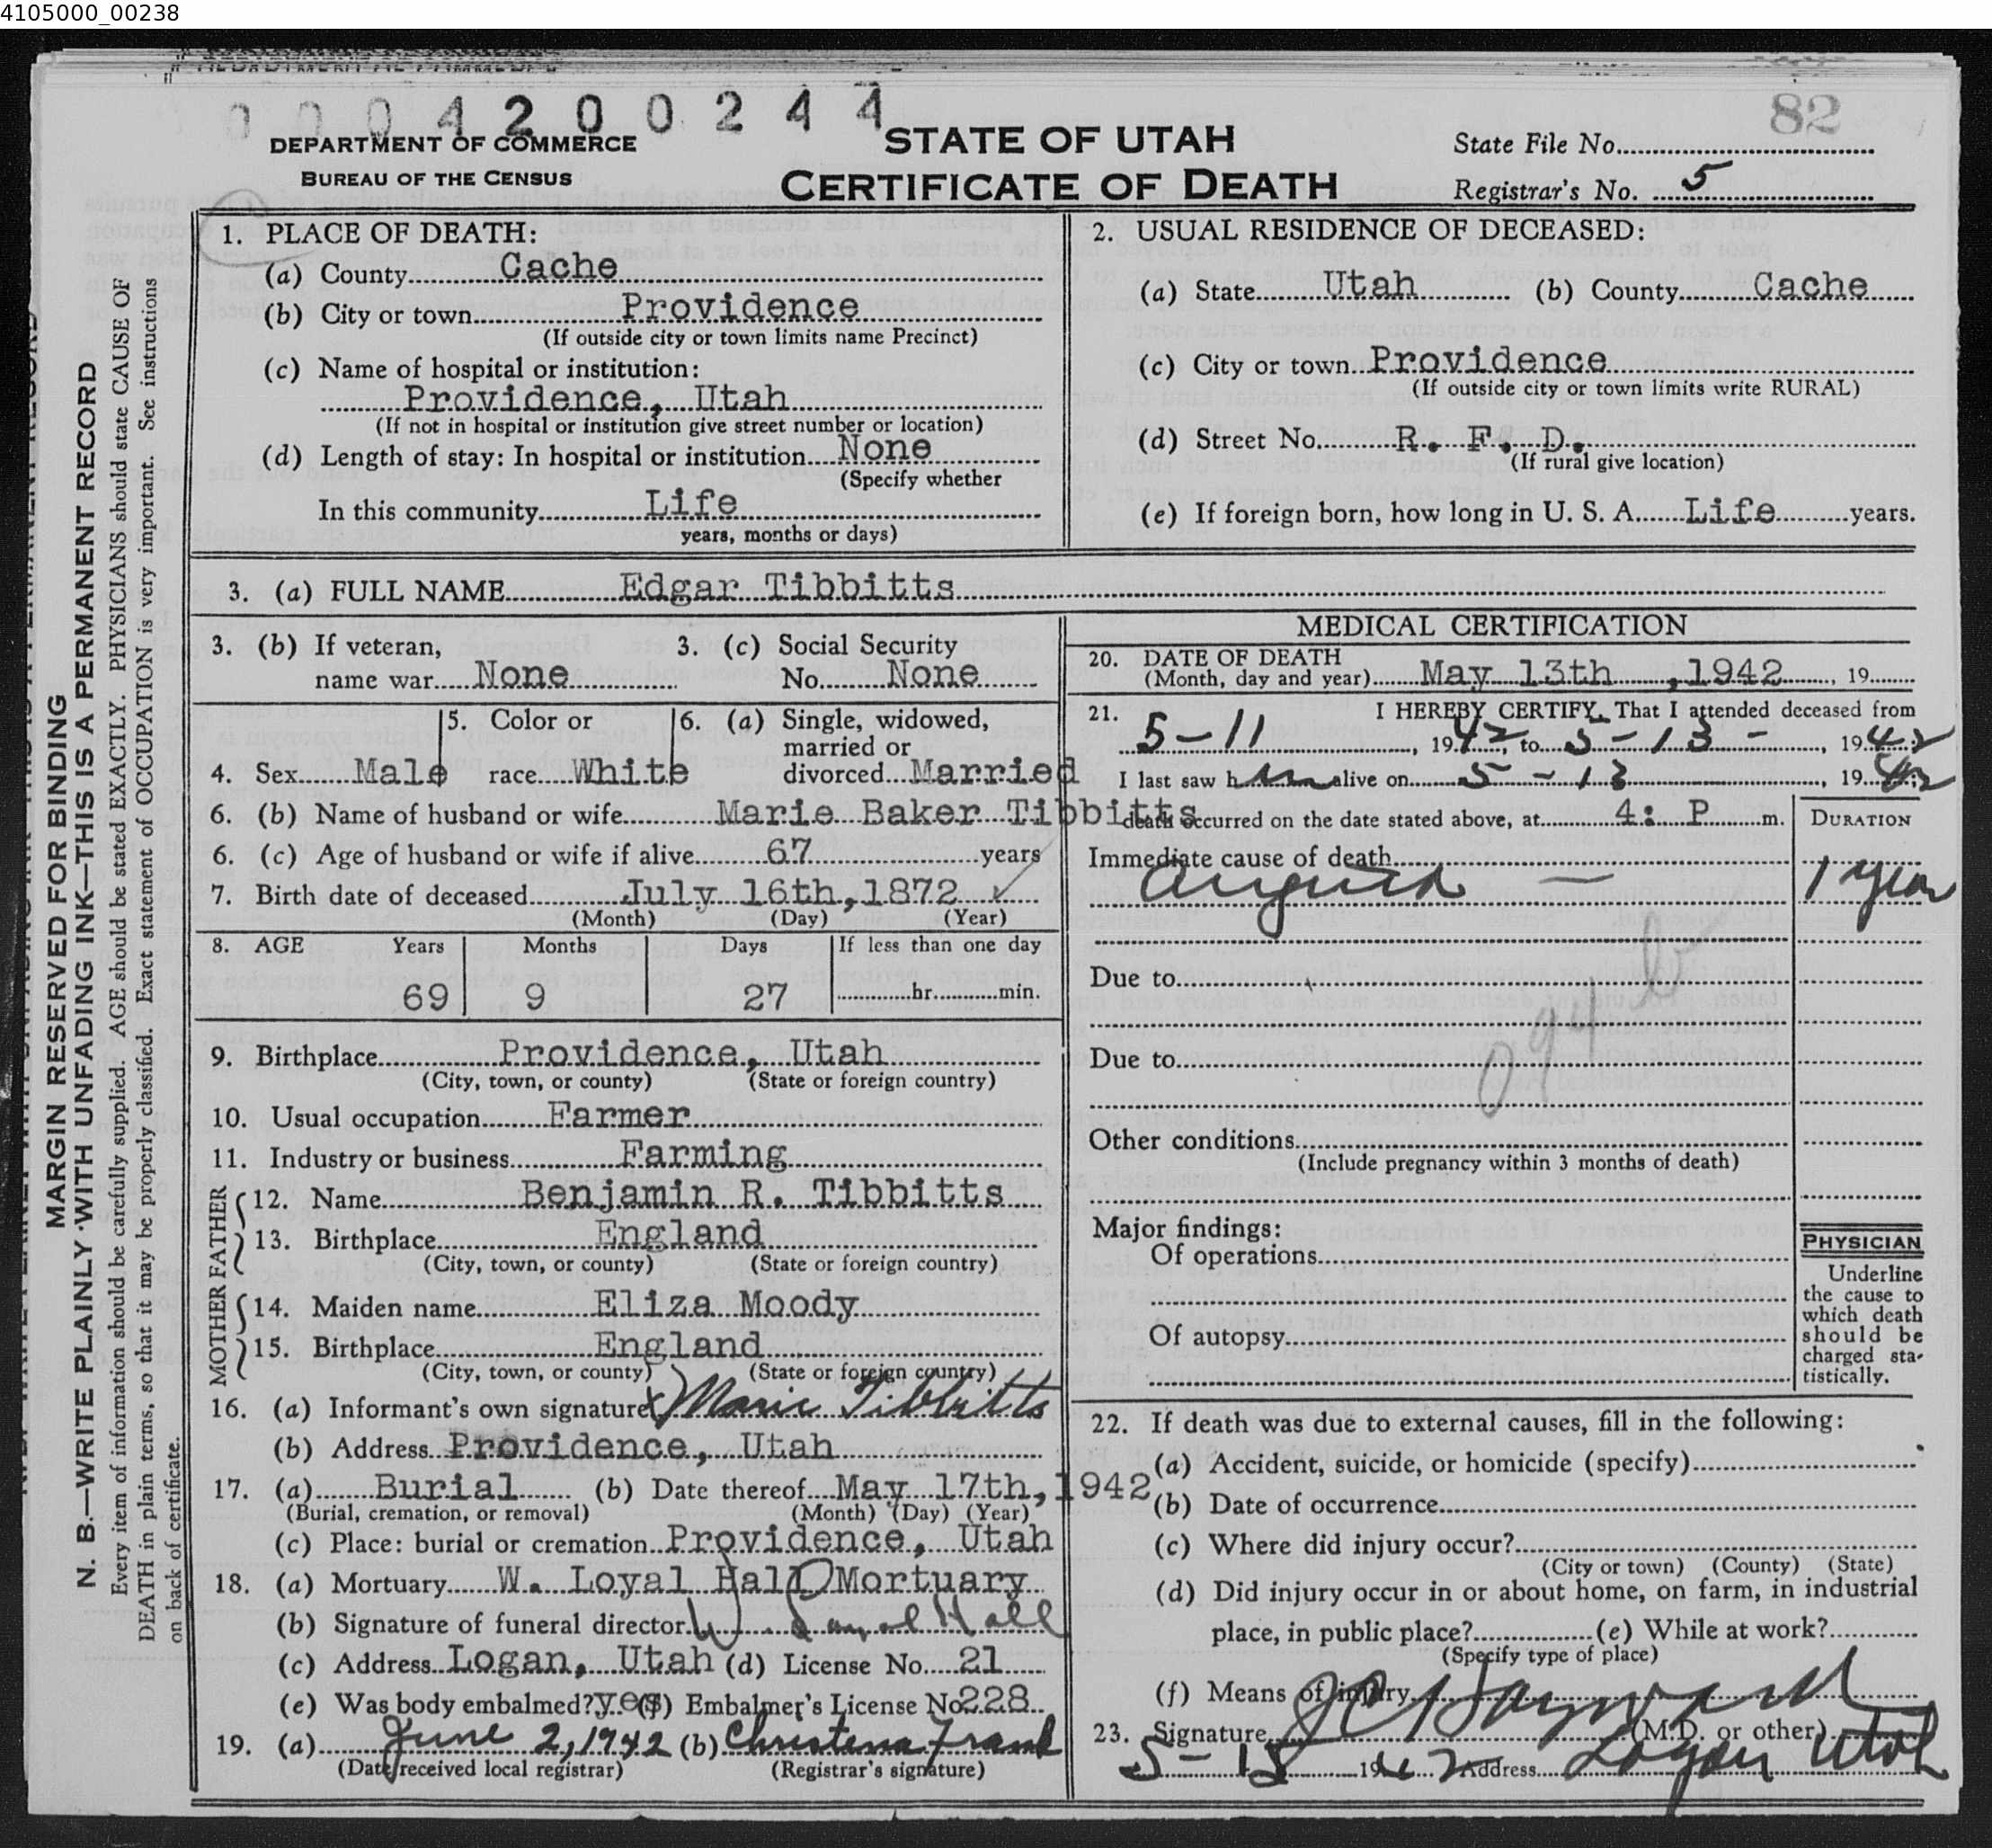 4105000_00238
0 0 0 4 2 0 0 2 4 4
82
DEPARTMENT OF COMMERCE
BUREAU OF THE CENSUS
STATE OF UTAH
CERTIFICATE OF DEATH
State File No.
Registrar's No. 5
MARGIN RESERVED FOR BINDING
N. B.—WRITE PLAINLY WITH UNFADING INK—THIS IS A PERMANENT RECORD
Every item of information should be carefully supplied. AGE should be stated EXACTLY. PHYSICIANS should state CAUSE OF
DEATH in plain terms, so that it may be properly classified. Exact statement of OCCUPATION is very important. See instructions
on back of certificate.
1. PLACE OF DEATH:
(a) County Cache
(b) City or town Providence
(If outside city or town limits name Precinct)
(c) Name of hospital or institution:
Providence, Utah
(If not in hospital or institution give street number or location)
(d) Length of stay: In hospital or institution None
(Specify whether
In this community Life
years, months or days)
2. USUAL RESIDENCE OF DECEASED:
(a) State Utah (b) County Cache
(c) City or town Providence
(If outside city or town limits write RURAL)
(d) Street No. R. F. D.
(If rural give location)
(e) If foreign born, how long in U. S. A. Life years.
3. (a) FULL NAME Edgar Tibbitts
3. (b) If veteran, 3. (c) Social Security
name war None No. None
5. Color or 6. (a) Single, widowed,
married or
4. Sex Male race White divorced Married
6. (b) Name of husband or wife Marie Baker Tibbitts
6. (c) Age of husband or wife if alive 67 years
7. Birth date of deceased July 16th, 1872 ✓
(Month) (Day) (Year)
8. AGE Years Months Days If less than one day
69 9 27 hr. min.
9. Birthplace Providence, Utah
(City, town, or county) (State or foreign country)
10. Usual occupation Farmer
11. Industry or business Farming
FATHER
12. Name Benjamin R. Tibbitts
13. Birthplace England
(City, town, or county) (State or foreign country)
MOTHER
14. Maiden name Eliza Moody
15. Birthplace England
(City, town, or county) (State or foreign country)
16. (a) Informant's own signature x Marie Tibbitts
(b) Address Providence, Utah
17. (a) Burial (b) Date thereof May 17th, 1942
(Burial, cremation, or removal) (Month) (Day) (Year)
(c) Place: burial or cremation Providence, Utah
18. (a) Mortuary W. Loyal Hall Mortuary
(b) Signature of funeral director W. Loyal Hall
(c) Address Logan, Utah (d) License No. 21
(e) Was body embalmed? yes (f) Embalmer's License No 228
19. (a) June 2, 1942 (b) Christena Frank
(Date received local registrar) (Registrar's signature)
MEDICAL CERTIFICATION
20. DATE OF DEATH
(Month, day and year) May 13th, 1942, 19
21. I HEREBY CERTIFY, That I attended deceased from
5-11, 1942, to 5-13-, 1942
I last saw him alive on 5-13, 1942
death occurred on the date stated above, at 4: P m.
DURATION
Immediate cause of death
Angina — 1 year
Due to
094 b
Due to
Other conditions
(Include pregnancy within 3 months of death)
Major findings:
Of operations
Of autopsy
PHYSICIAN
Underline
the cause to
which death
should be
charged sta-
tistically.
22. If death was due to external causes, fill in the following:
(a) Accident, suicide, or homicide (specify)
(b) Date of occurrence
(c) Where did injury occur?
(City or town) (County) (State)
(d) Did injury occur in or about home, on farm, in industrial
place, in public place? (e) While at work?
(Specify type of place)
(f) Means of injury
23. Signature J C Hayward (M.D. or other)
5-15 1942 Address Logan Utah